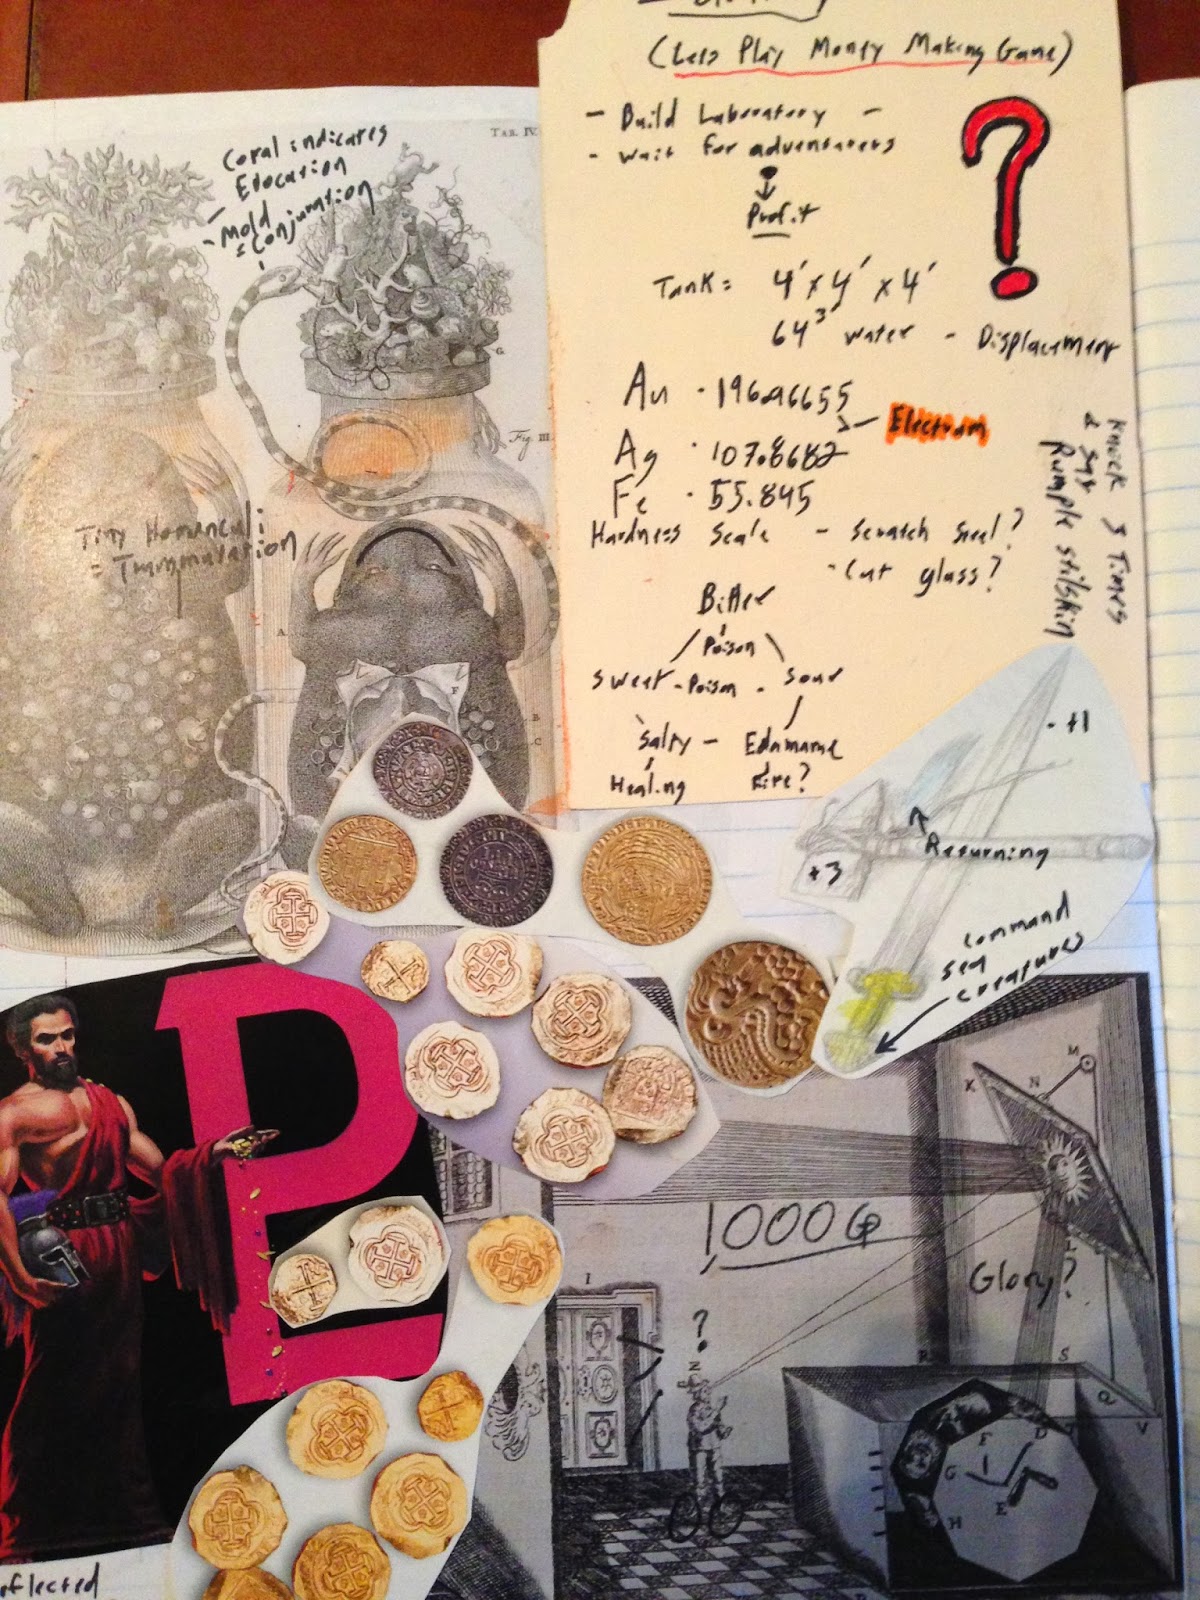 (Lets Play Money Making Game)
- Build Laboratory -
- Wait for adventurers
Profit
Tank = 4' x 4' x 4'
64³ water - Displacement
Au - 196.96655
Electrum
Ag - 107.8682
Fe - 55.845
Hardness Scale - Scratch Steel?
- Cut glass?
Bitter
Poison
Sweet - Poison - Sour
Salty - Edamame
Healing Fire?
Knock 3 Times
& Say
Rumple stilskin
TAB. IV.
Coral indicates
Evocation
- Mold
= Conjuration
G.
Fig. III.
Tiny Homunculi
= Transmutation
A.
F
B
C
- +1
Returning
+3
Command
sea
creatures
P
M
K N
1000 GP
Glory?
I
?
Z
L
R S
Q
V
F D
G
E
H
eflected